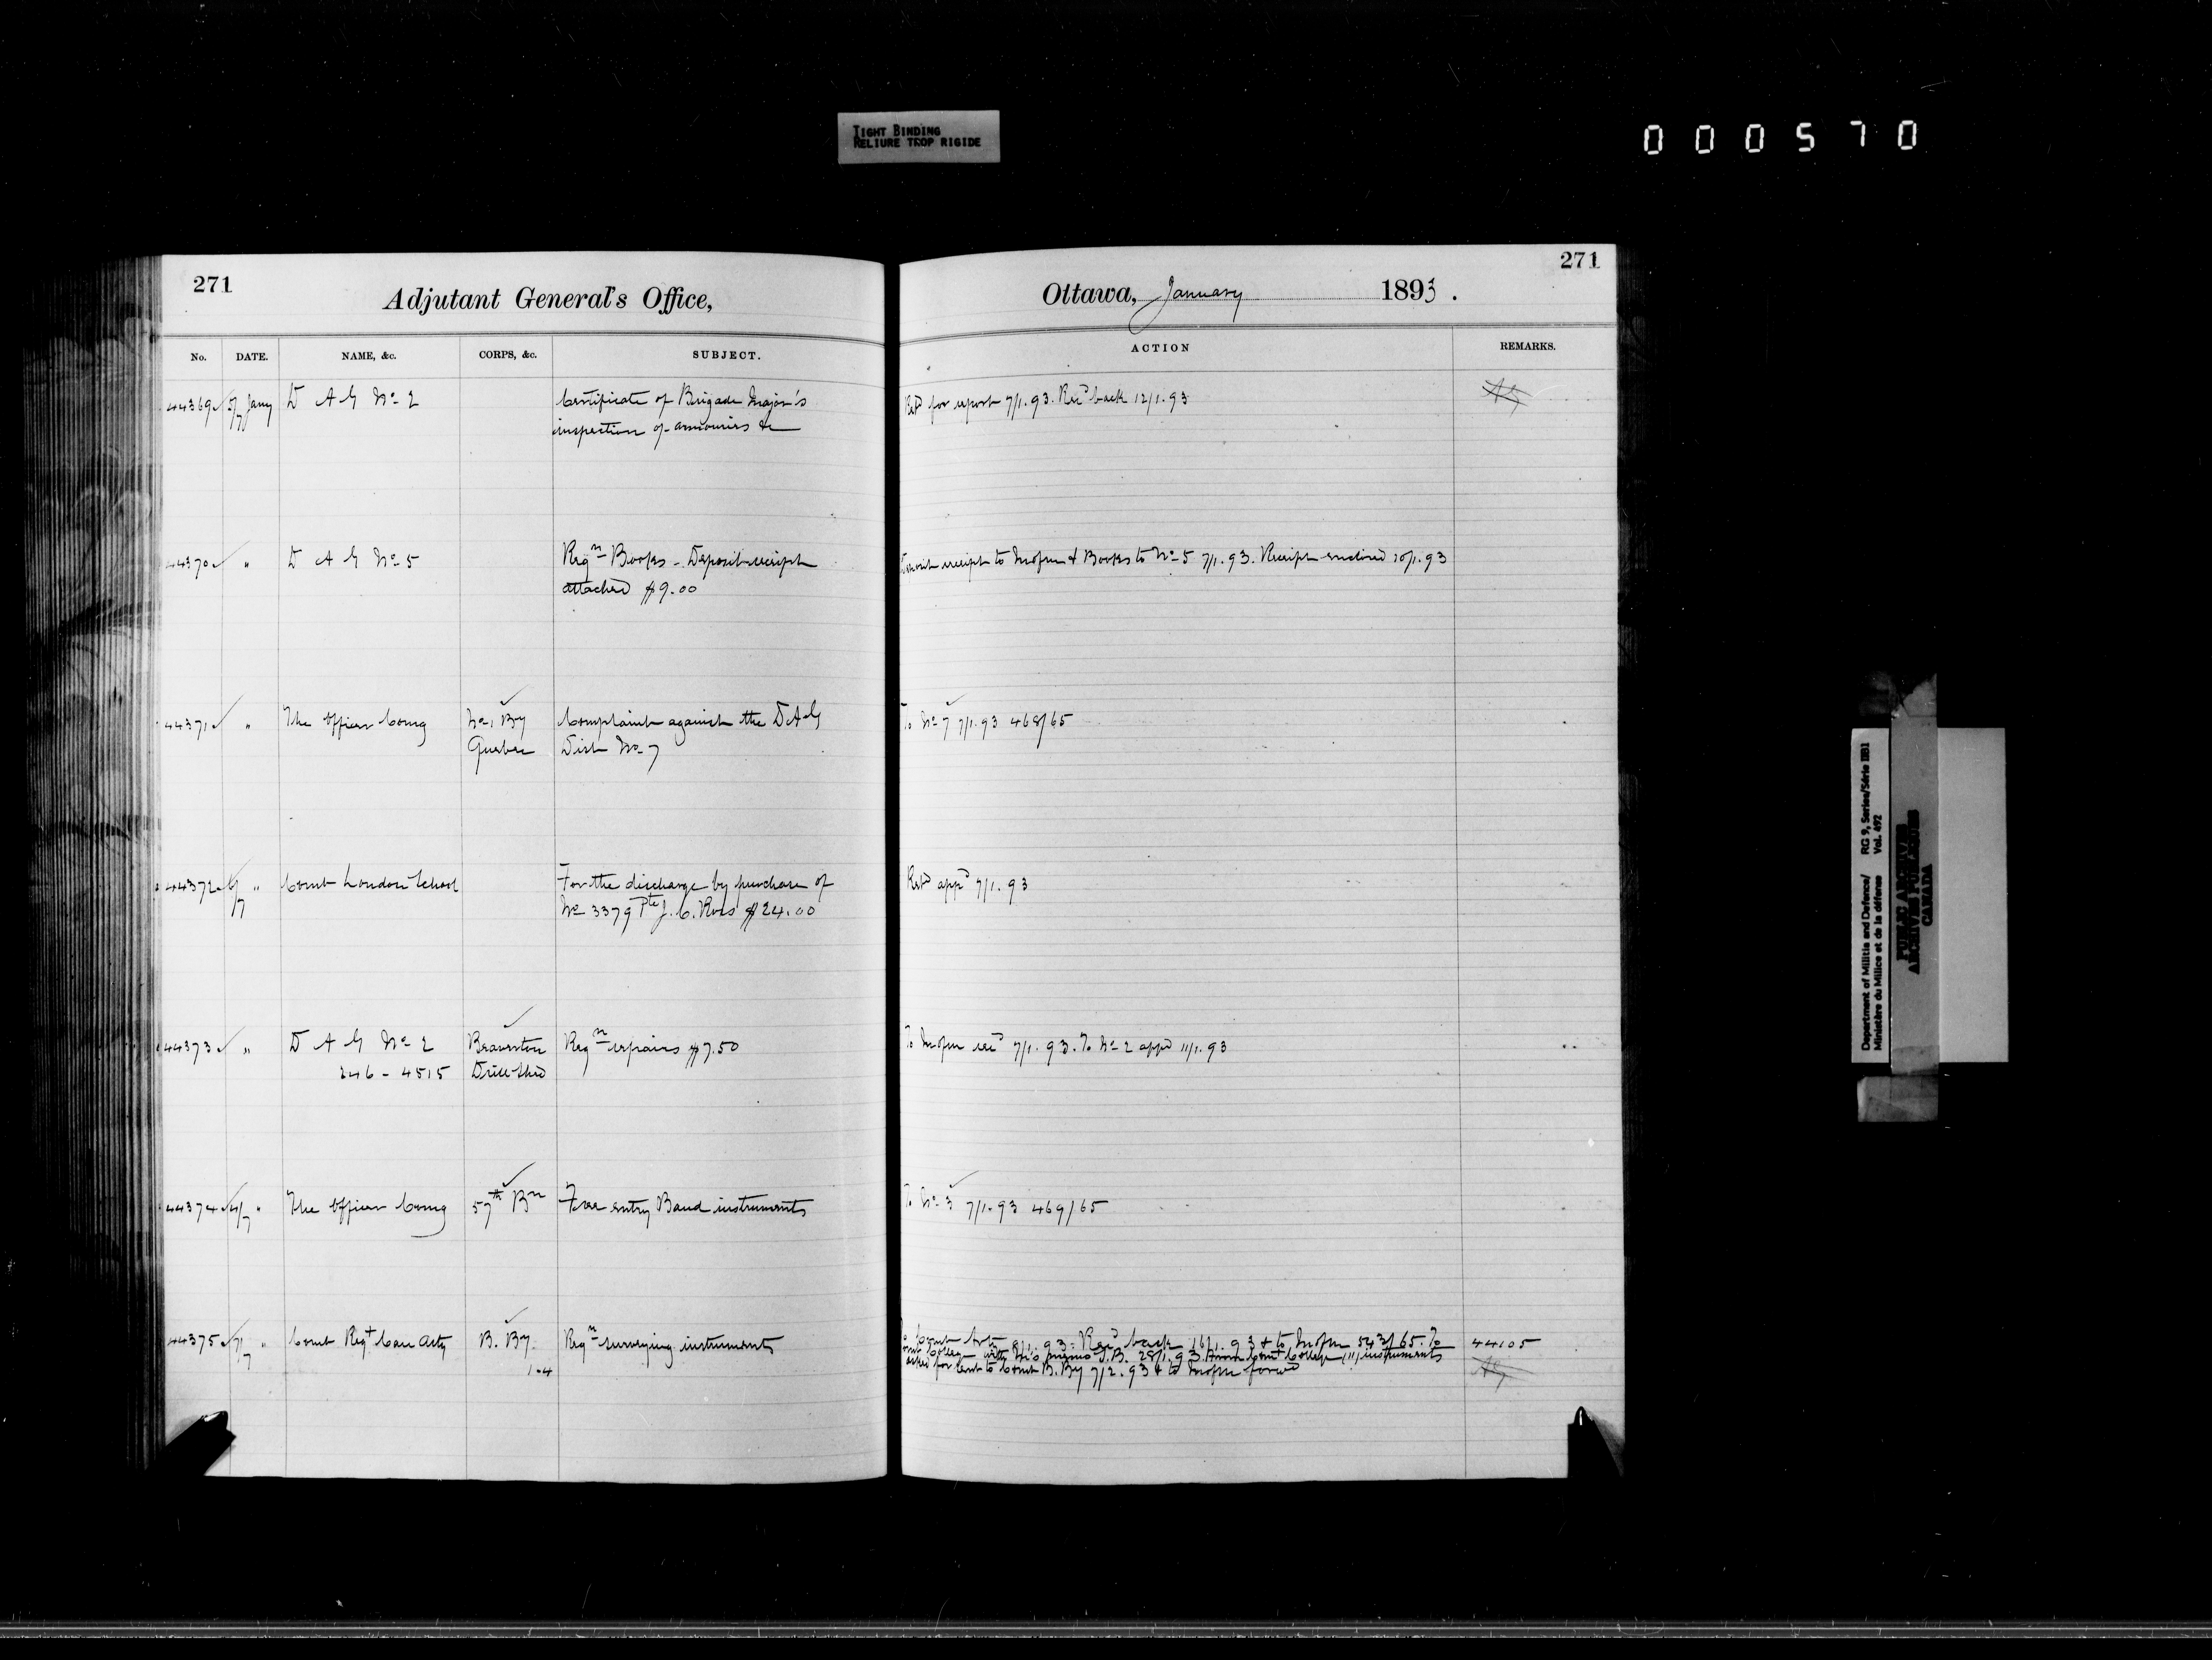 TIGHT BINDING
RELIURE TROP RIGIDE
000570
271
Adjutant General's Office,
No. DATE. NAME, &c. CORPS, &c. SUBJECT.
44369 5/7 Jany D A G No 2 Certificate of Brigade Major's
inspection of armouries &c
44370 " D A G No 5 Reqn Books - Deposit receipt
attached $9.00
44371 " The Officer Comg No 1 By Complaint against the DAG
Quebec Dist No 7
44372 6/7 " Comt London School For the discharge by purchase of
No 3379 Pte J. C. Ross $24.00
44373 " D A G No 2 Beaverton Reqn repairs $7.50
246 - 4515 Drill Shed
44374 4/7 " The Officer Comg 57th Bn Free entry Band instruments
44375 7/7 " Comt Regt Can Arty B. By Reqn surveying instruments
1-4
271
Ottawa, January 1893.
ACTION REMARKS.
Retd for report 7/1.93. Recd back 12/1.93
receipt to & Books to No 5 7/1.93. Receipt enclosed 10/1.93
To No 7 7/1.93 468/65
Retd appd 7/1.93
To recd 7/1.93. To No 2 appd 11/1.93
To No 3 7/1.93 469/65
8/1.93. Recd back 16/1.93 & to 543/65. To 44105
with his memo 28/1.93 College instruments
for to Comt B. By 7/2.93 & to
Department of Militia and Defence/ RG 9, Series/Série IIB1
Ministère du Milice et de la défense Vol. 492
PUBLIC ARCHIVES
ARCHIVES PUBLIQUES
CANADA